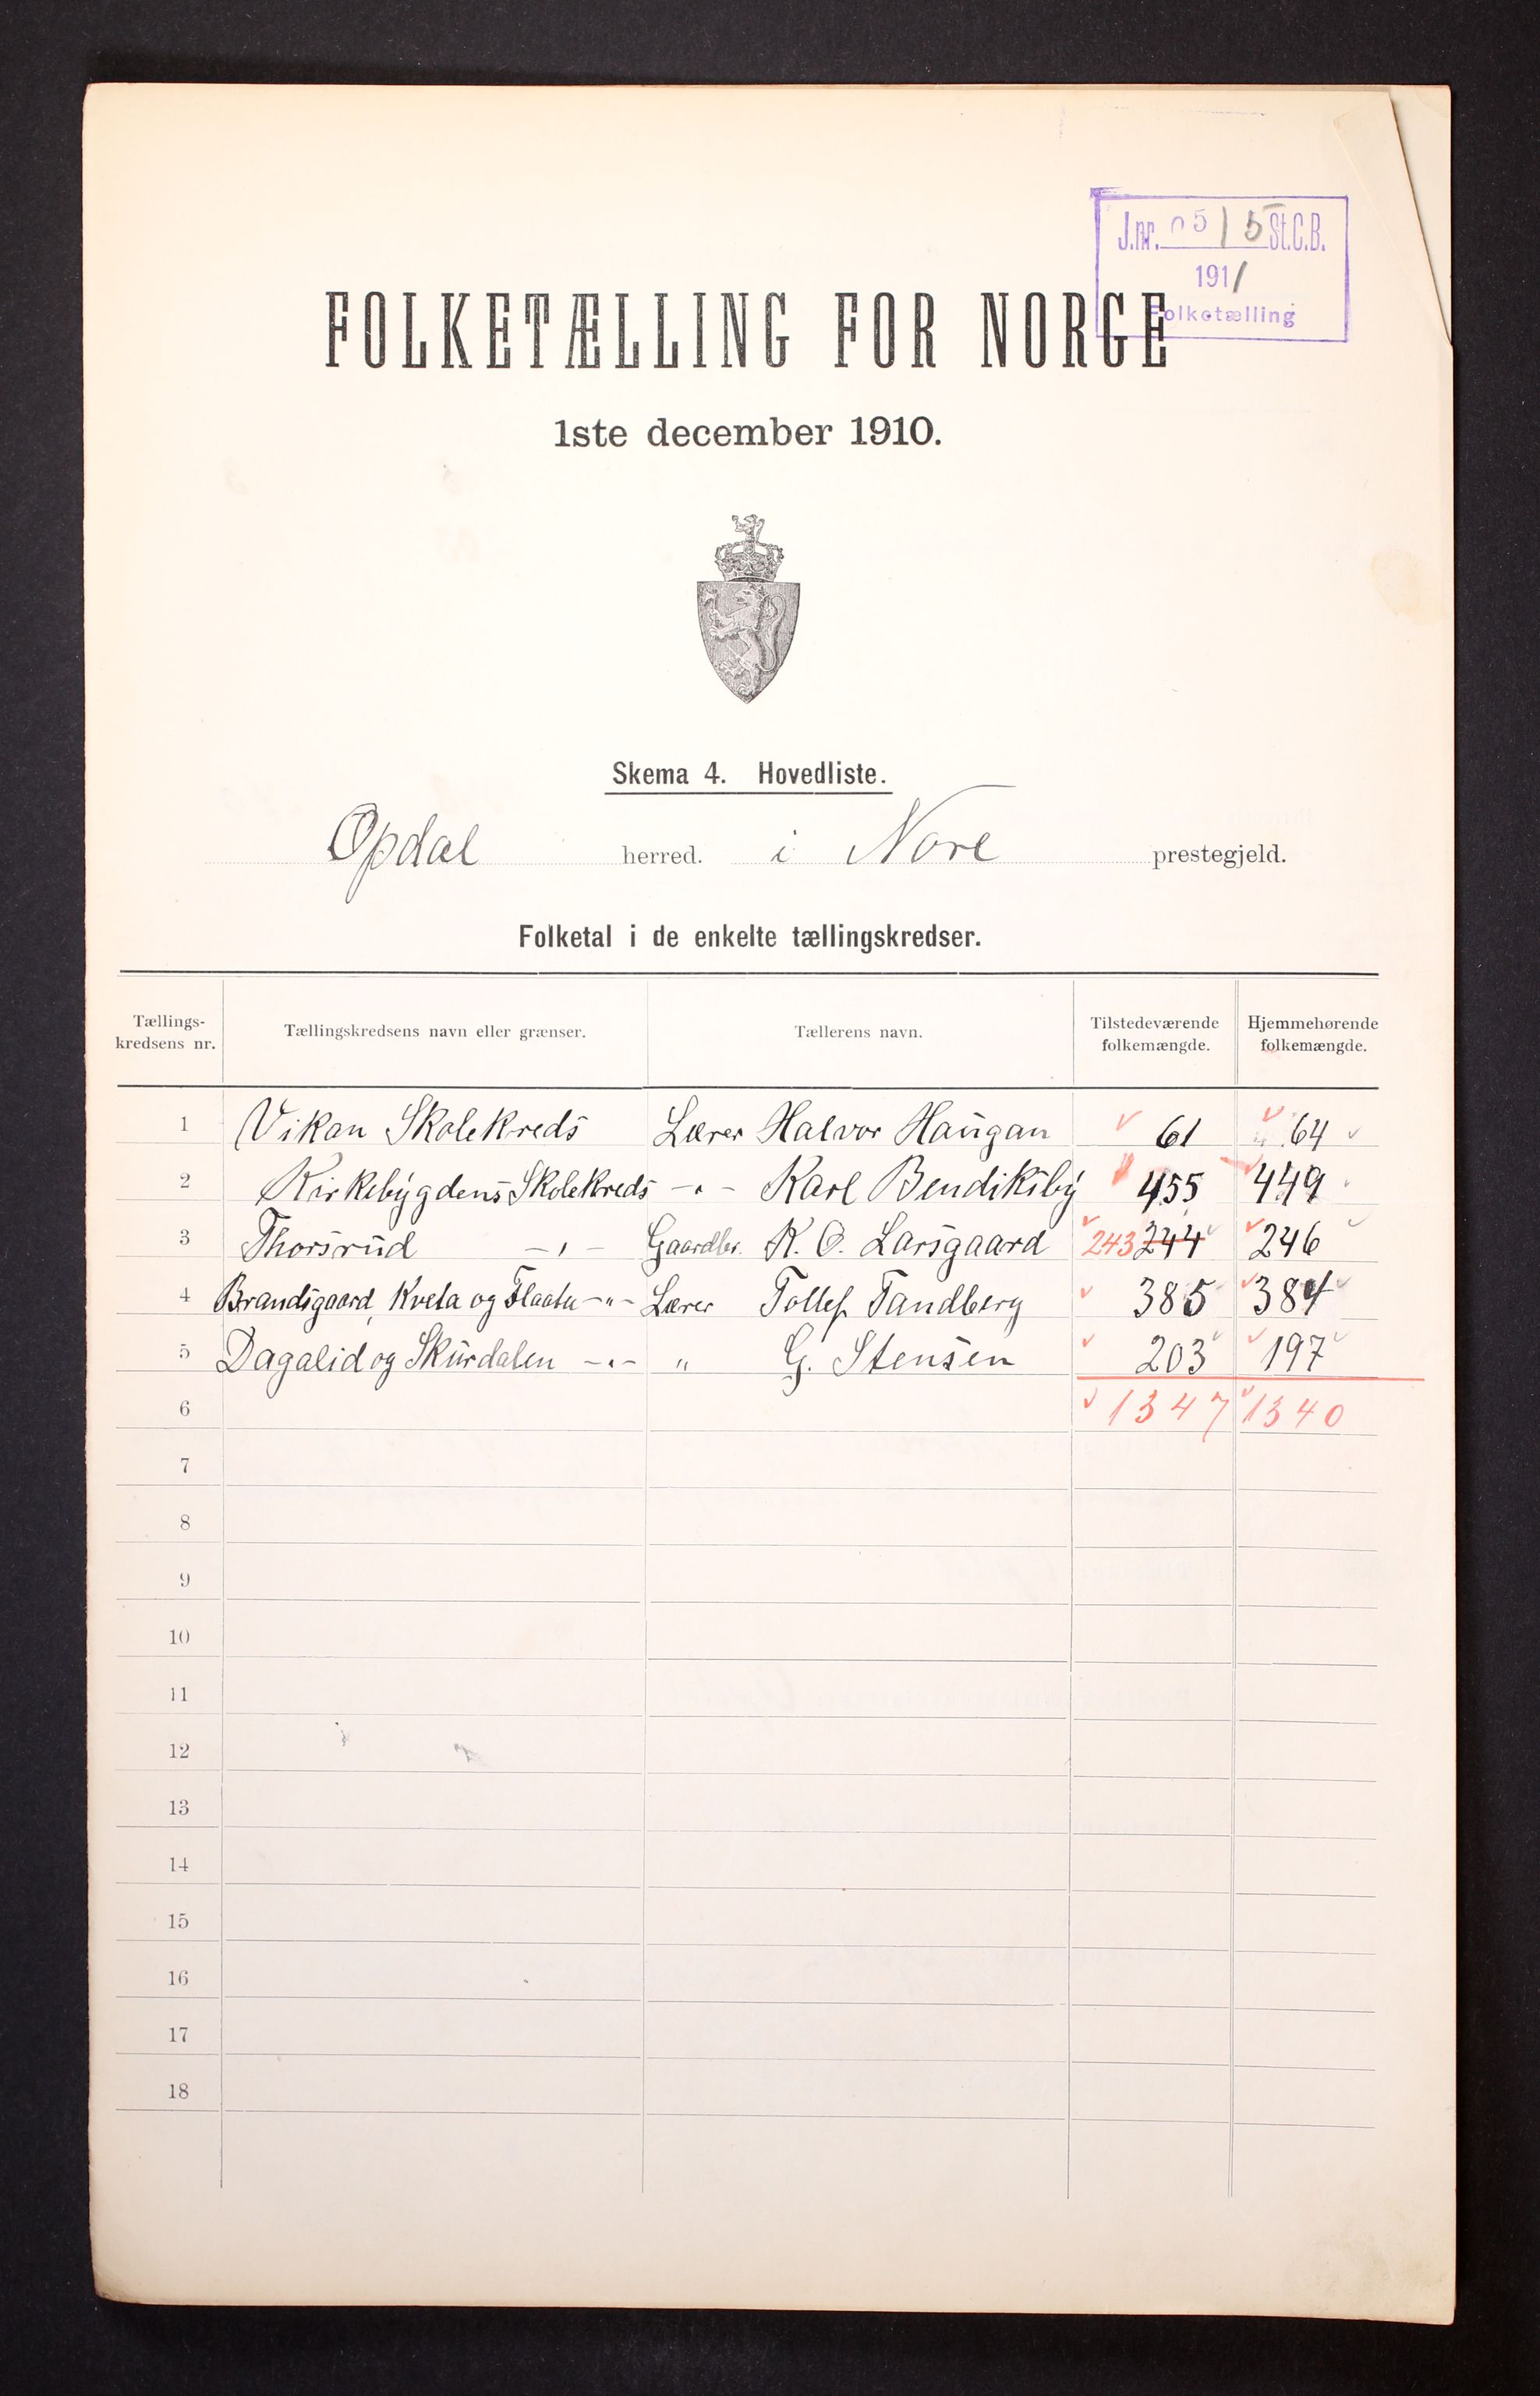 J.nr. 5 / 5 St.C.B.
1911
Folketælling
FOLKETÆLLING FOR NORGE
1ste december 1910.
Skema 4. Hovedliste.
Opdal herred. i Nore prestegjeld.
Folketal i de enkelte tællingskredser.
Tællings-kredsens nr. Tællingskredsens navn eller grænser. Tællerens navn. Tilstedeværende folkemængde. Hjemmehørende folkemængde.
1 Vikan Skolekreds Lærer Halvor Haugan 61 64
2 Kirkebygdens Skolekreds -"- Karl Bendiksby 455 449
3 Thorsrud -"- Gaardbr. K. O. Larsgaard 243 244 246
4 Brandsgaard, Kvela og Flaata -"- Lærer Tollef Tandberg 385 384
5 Dagalid og Skurdalen -"- " G. Stensen 203 197
6 1347 1340
7
8
9
10
11
12
13
14
15
16
17
18